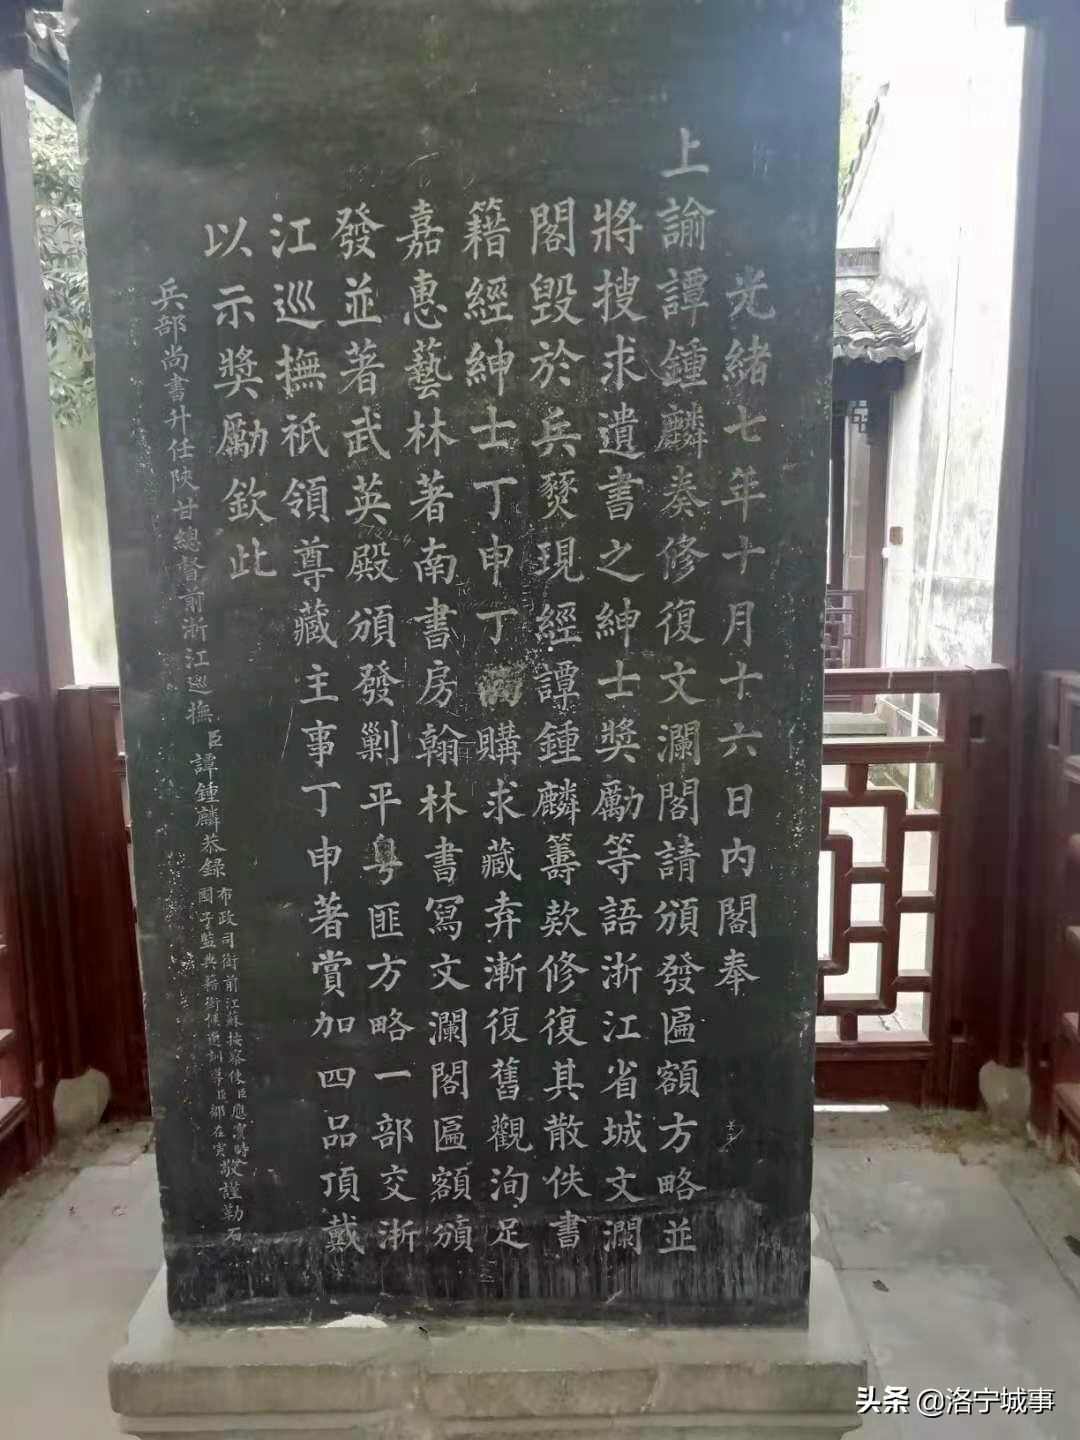 光緒七年十月十六日內閣奉
上諭譚鍾麟奏修復文瀾閣請頒發匾額方略並
將搜求遺書之紳士獎勵等語浙江省城文瀾
閣毀於兵燹現經譚鍾麟籌款修復其散佚書
籍經紳士丁申丁丙購求藏弆漸復舊觀洵足
嘉惠藝林著南書房翰林書寫文瀾閣匾額頒
發並著武英殿頒發剿平粵匪方略一部交浙
江巡撫祇領尊藏主事丁申著賞加四品頂戴
以示獎勵欽此
兵部尚書升任陝甘總督前浙江巡撫臣譚鍾麟恭録
布政司銜前江蘇按察使臣應寶時
國子監典籍銜候選訓導臣鄒在寅敬謹勒石
头条 @洛宁城事